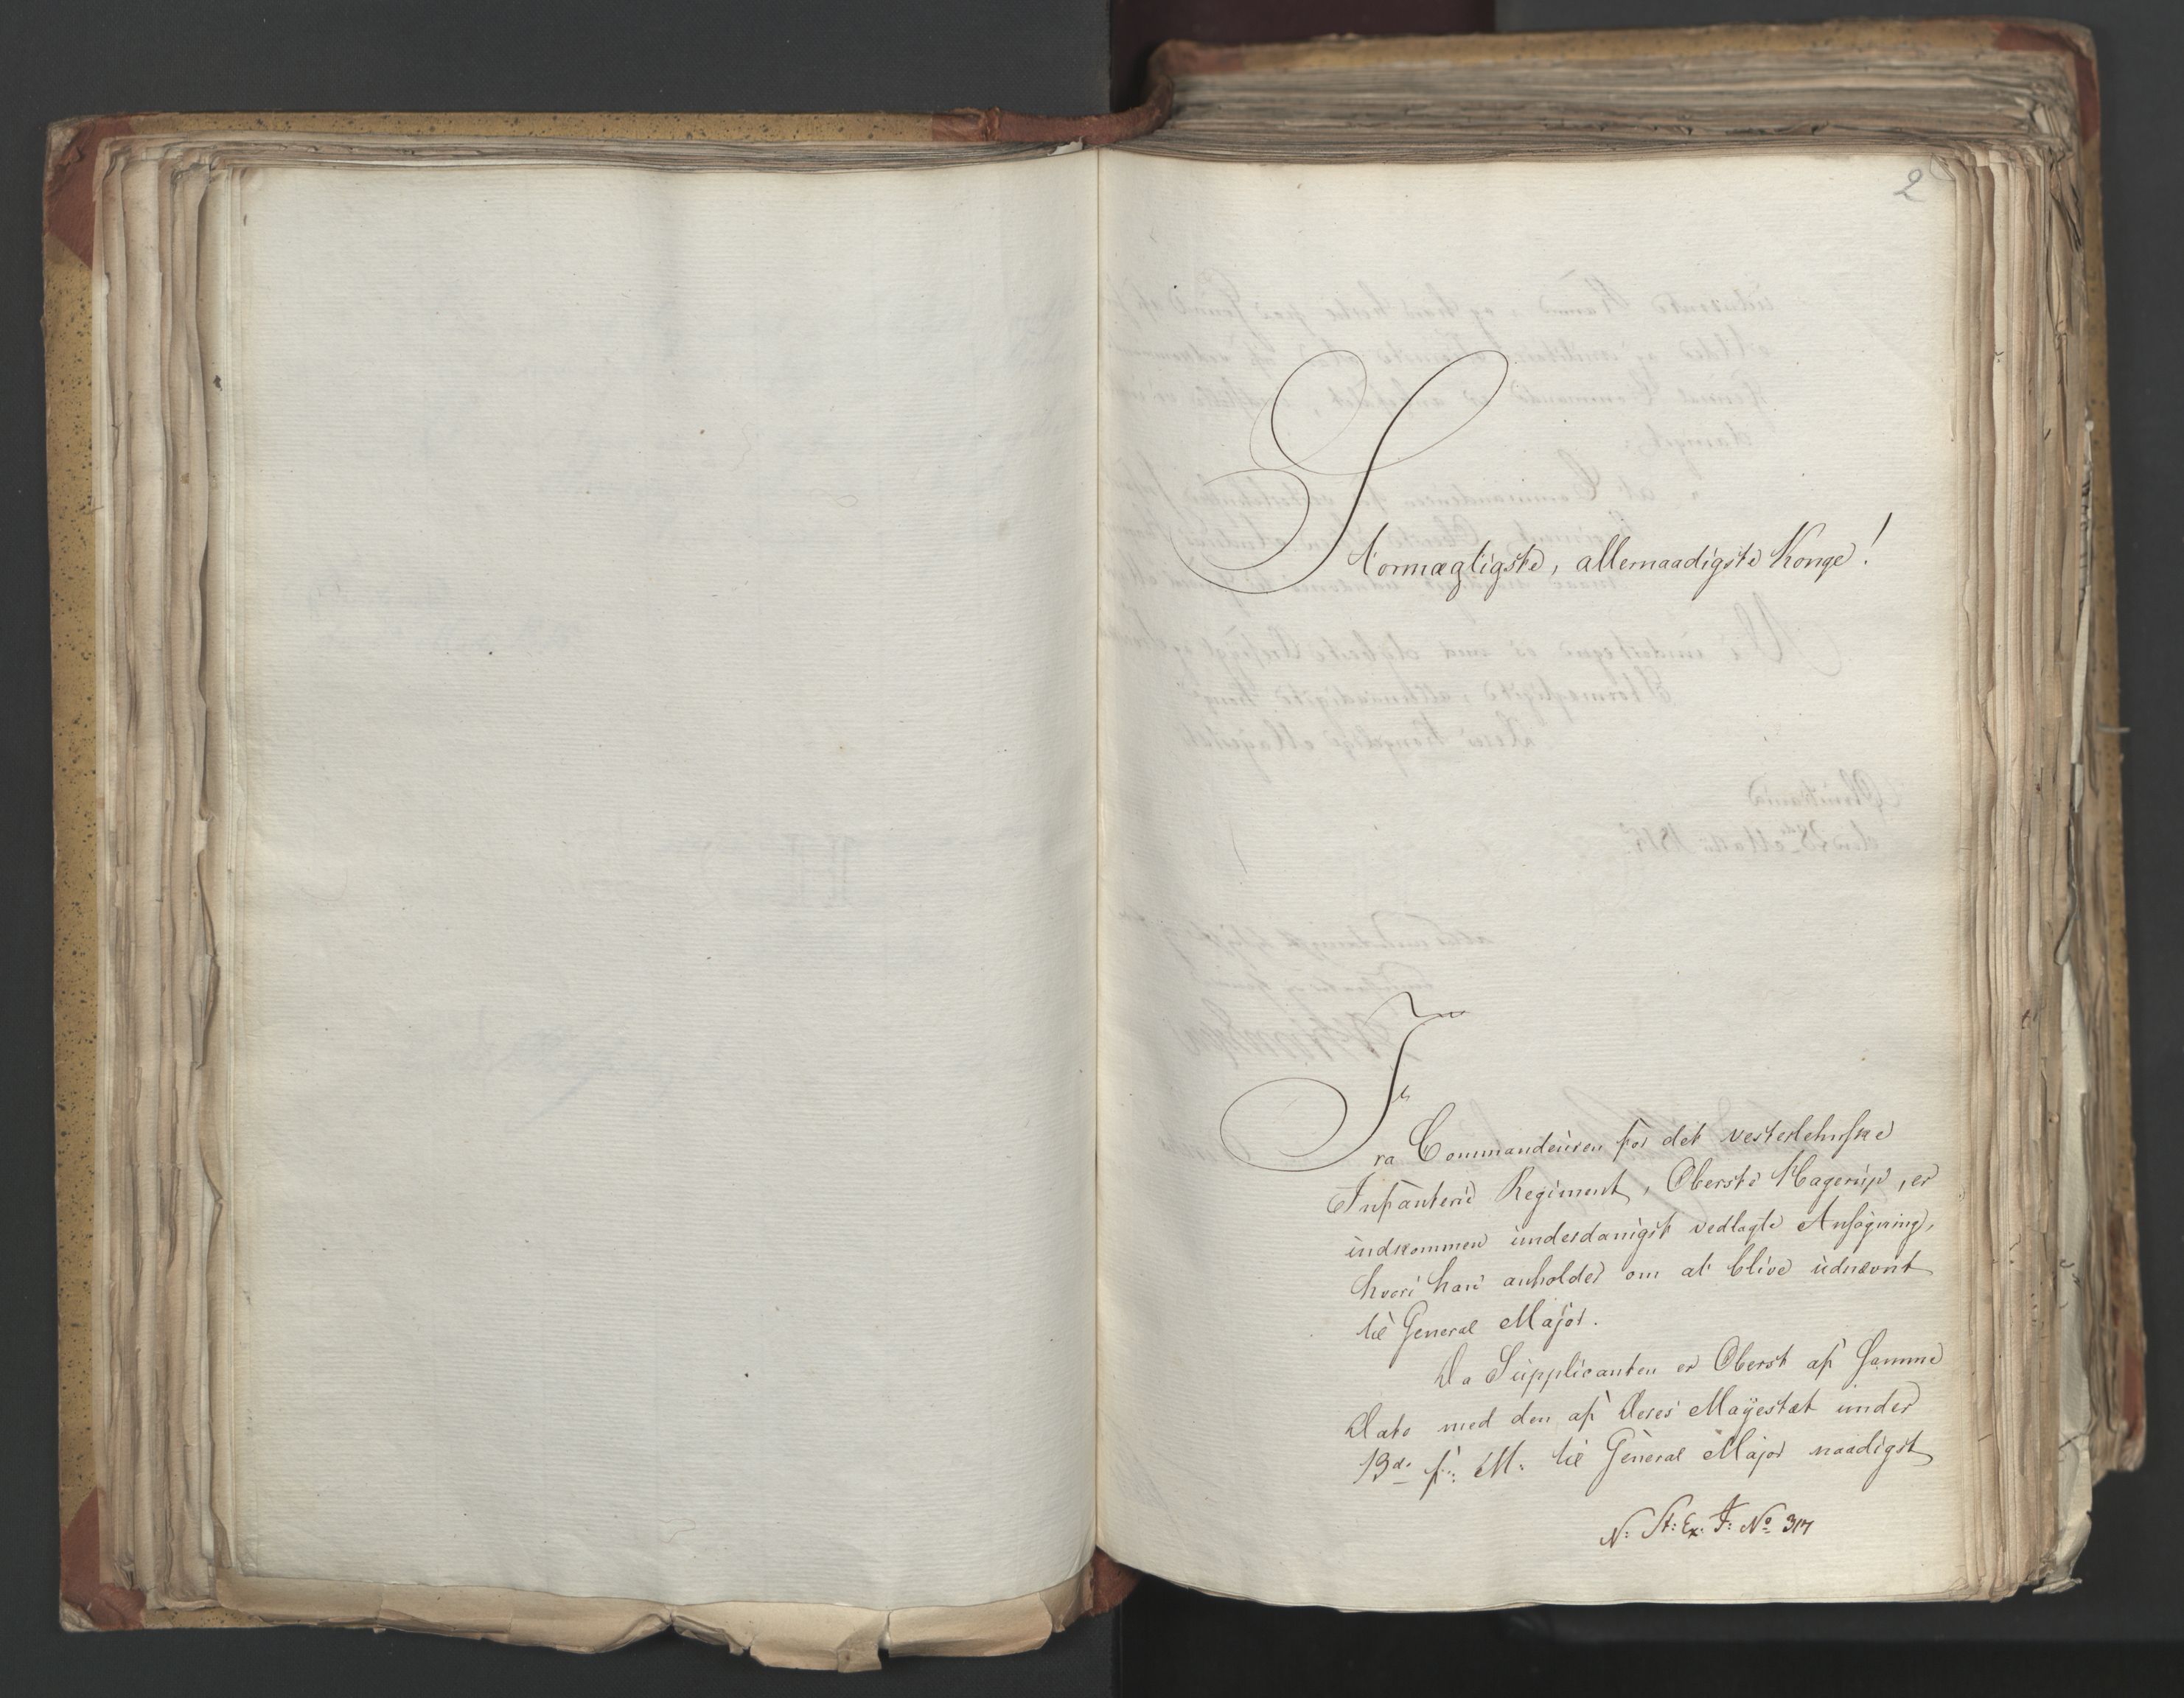 2
Stormægtigste, allernaadigste Konge!
Fra Commandeuren for det vesterlehnske
Infanterie Regiment, Oberste Hagerup, er
indkommen underdanigst vedlagte Ansøgning,
hvori han anholder om at blive udnævnt
til General Major.
Da Supplicanten er Oberst af samme
Dato med den af Deres Mayestæt under
13de f: M: til General Major naadigst
N: St: Ex: F: No 317